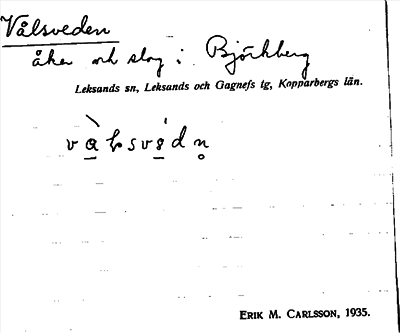 Vålsveden
åker och slog i Björkberg
Leksands sn, Leksands och Gagnefs tg, Kopparbergs län.
ERIK M. CARLSSON, 1935.